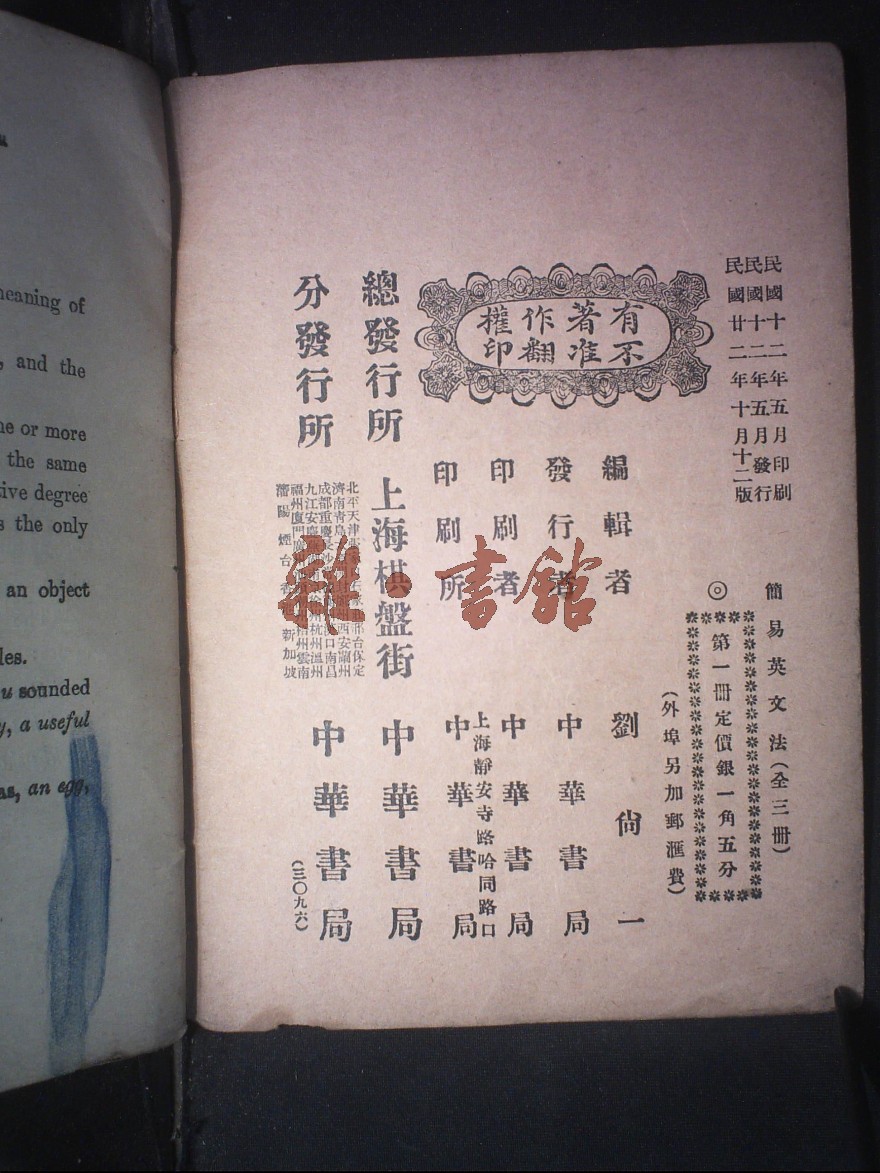 民國十二年五月印刷
民國十二年五月發行
民國廿二年十月十二版
簡易英文法(全三冊)
◎
第一冊定價銀一角五分
(外埠另加郵滙費)
有著作權
不准翻印
編輯者 劉尙一
發行者 中華書局
印刷者 中華書局
上海靜安寺路哈同路口
印刷所 中華書局
總發行所 上海棋盤街 中華書局
分發行所
北平天津
保定
濟南青島
西安蘭州
成都重慶長沙
口南昌
九江安慶
徐州杭州溫州
福州廈門廣州
梧州雲南
瀋陽煙台香港新加坡
中華書局
(三〇九六)
雜·書館
meaning of
, and the
ne or more
the same
tive degree
s the only
an object
les.
u sounded
y, a useful
as, an egg,